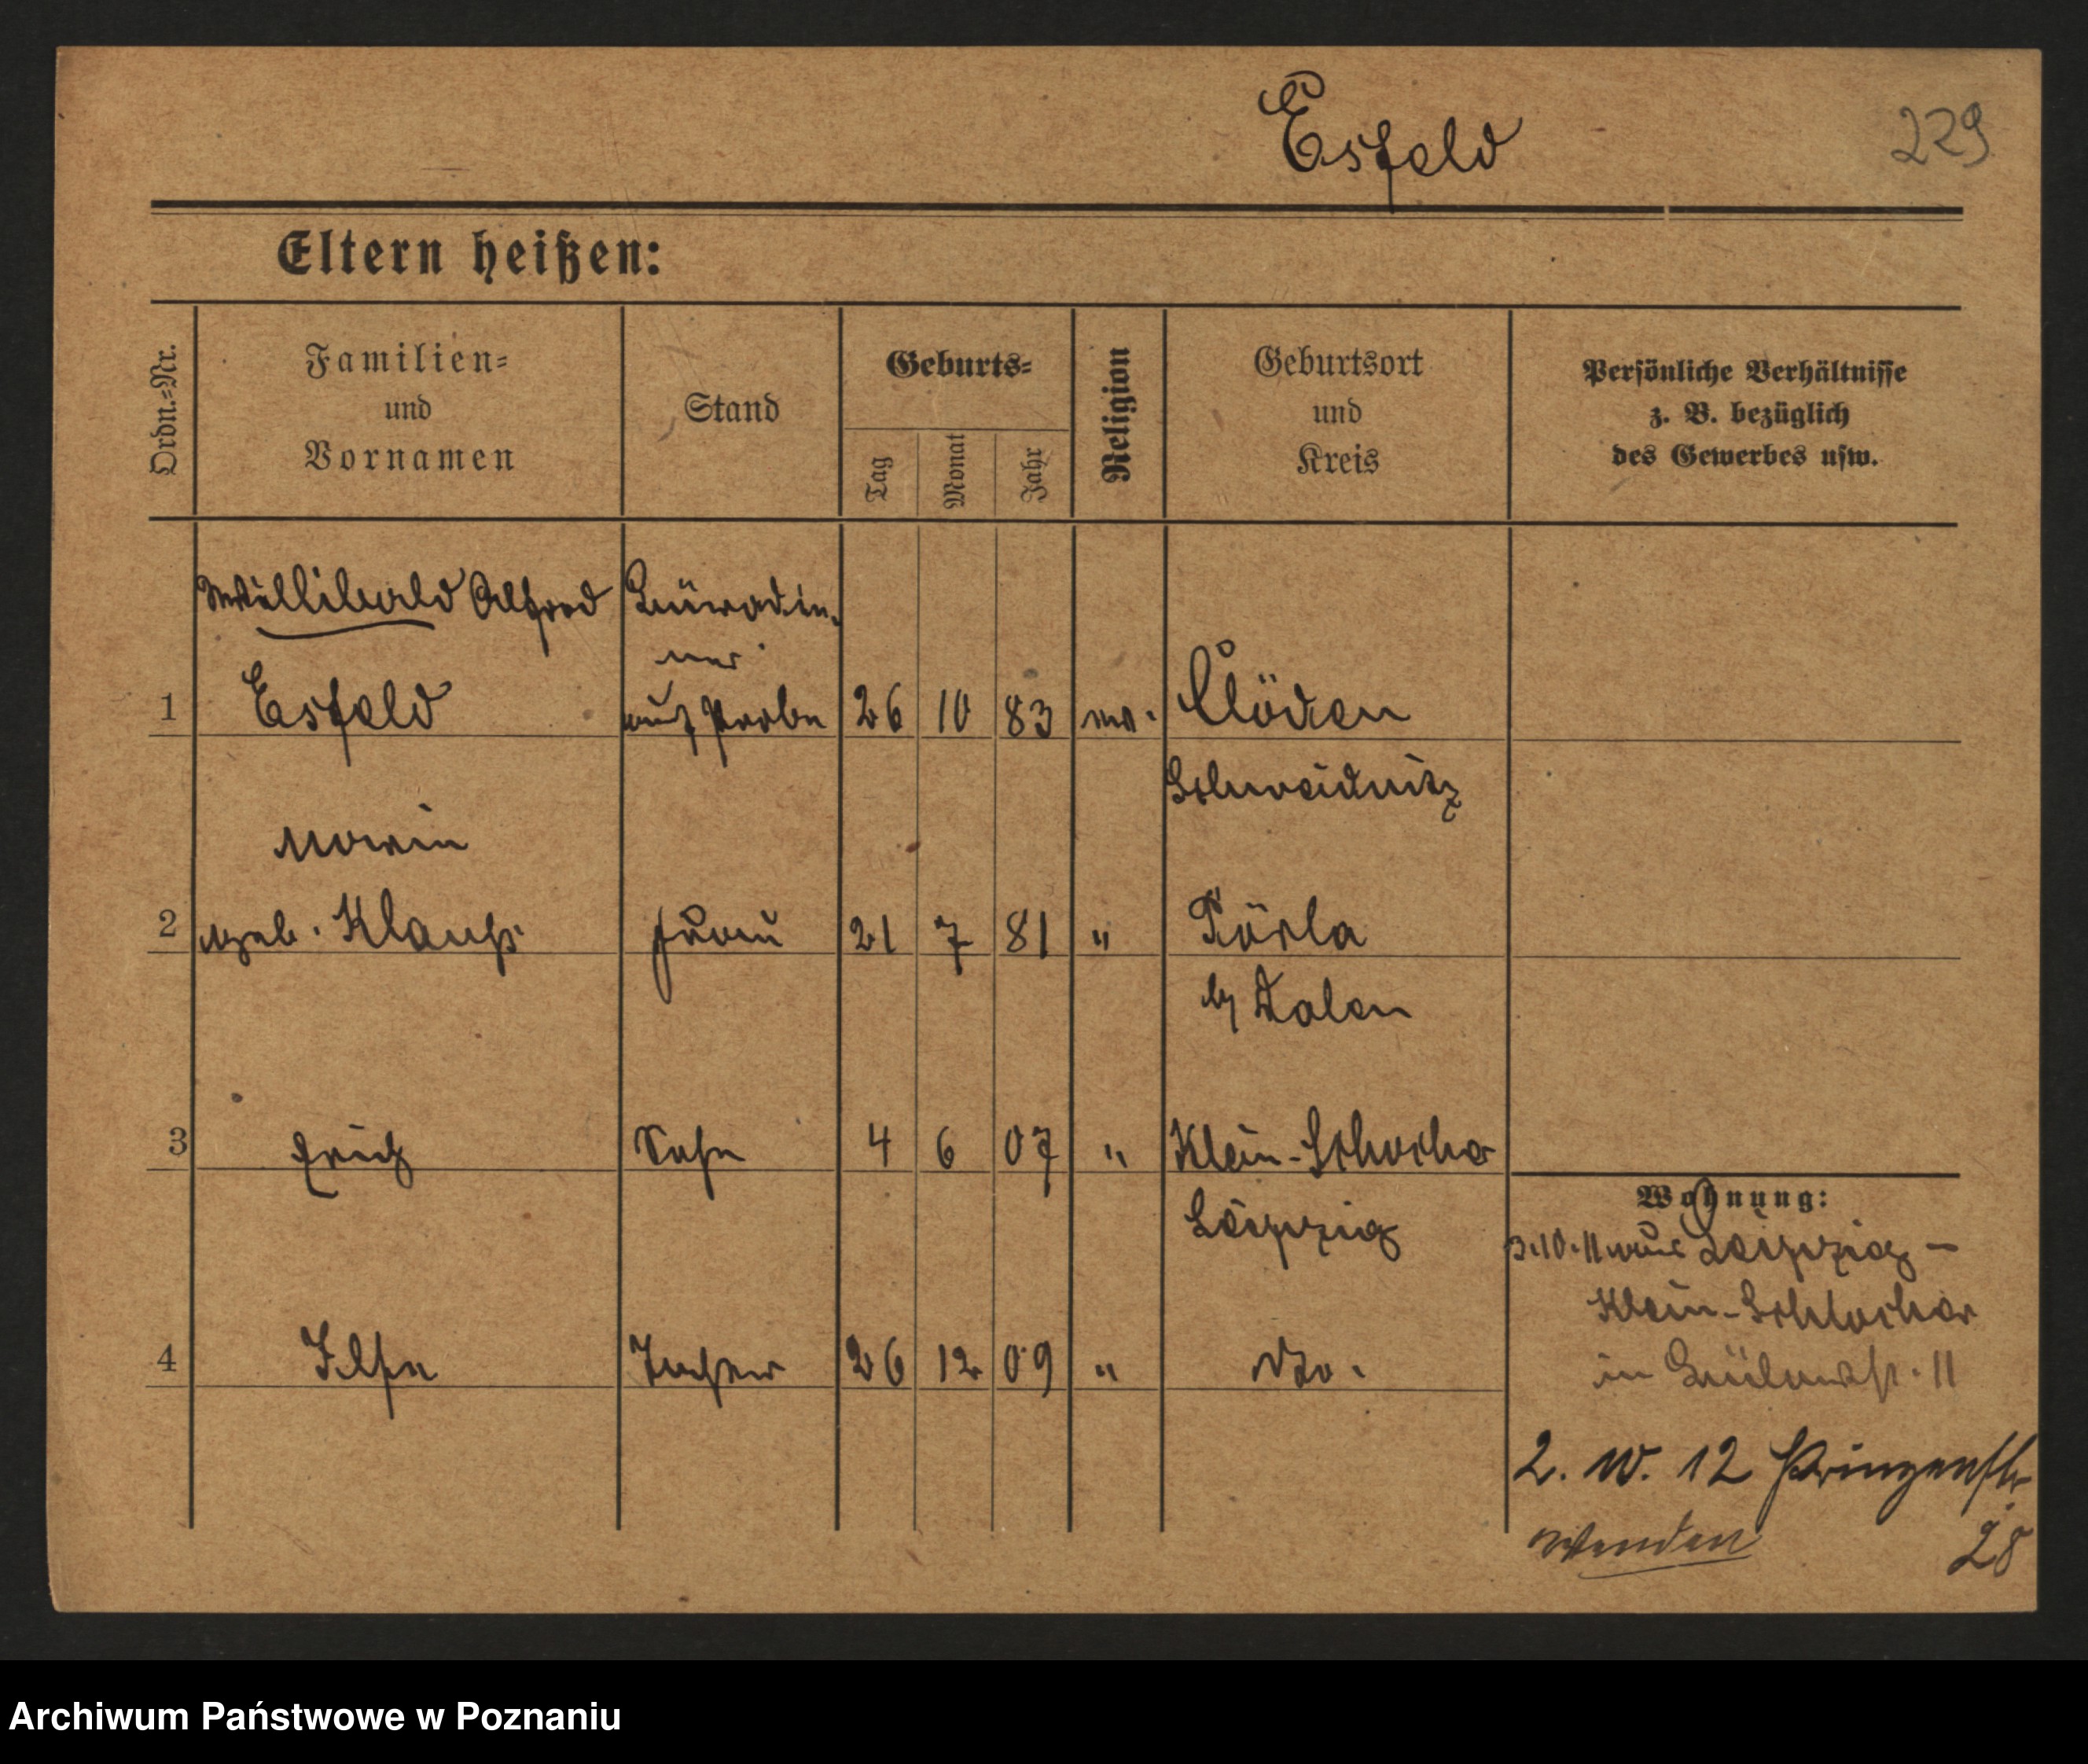 Esfeld
229
Eltern heißen:
Ordn.=Nr.
Familien=
und
Vornamen
Stand
Geburts=
Tag
Monat
Jahr
Religion
Geburtsort
und
Kreis
Persönliche Verhältnisse
z. B. bezüglich
des Gewerbes usw.
1
Willibald Alfred
Esfeld
auf Probe
26 10 83
ev.
Clöden
Schweidnitz
2
Maria
geb. Klauß
Frau
21 7 81
"
bei Dalen
3
Erich
Sohn
4 6 07
"
Klein-Schocher
Leipzig
4
Ilse
Tochter
26 12 09
"
do.
Wohnung:
3.10.11 aus Leipzig -
Klein-Schlocher
in 11
2. 10. 12 Prinzenstr
28
wenden
Archiwum Państwowe w Poznaniu